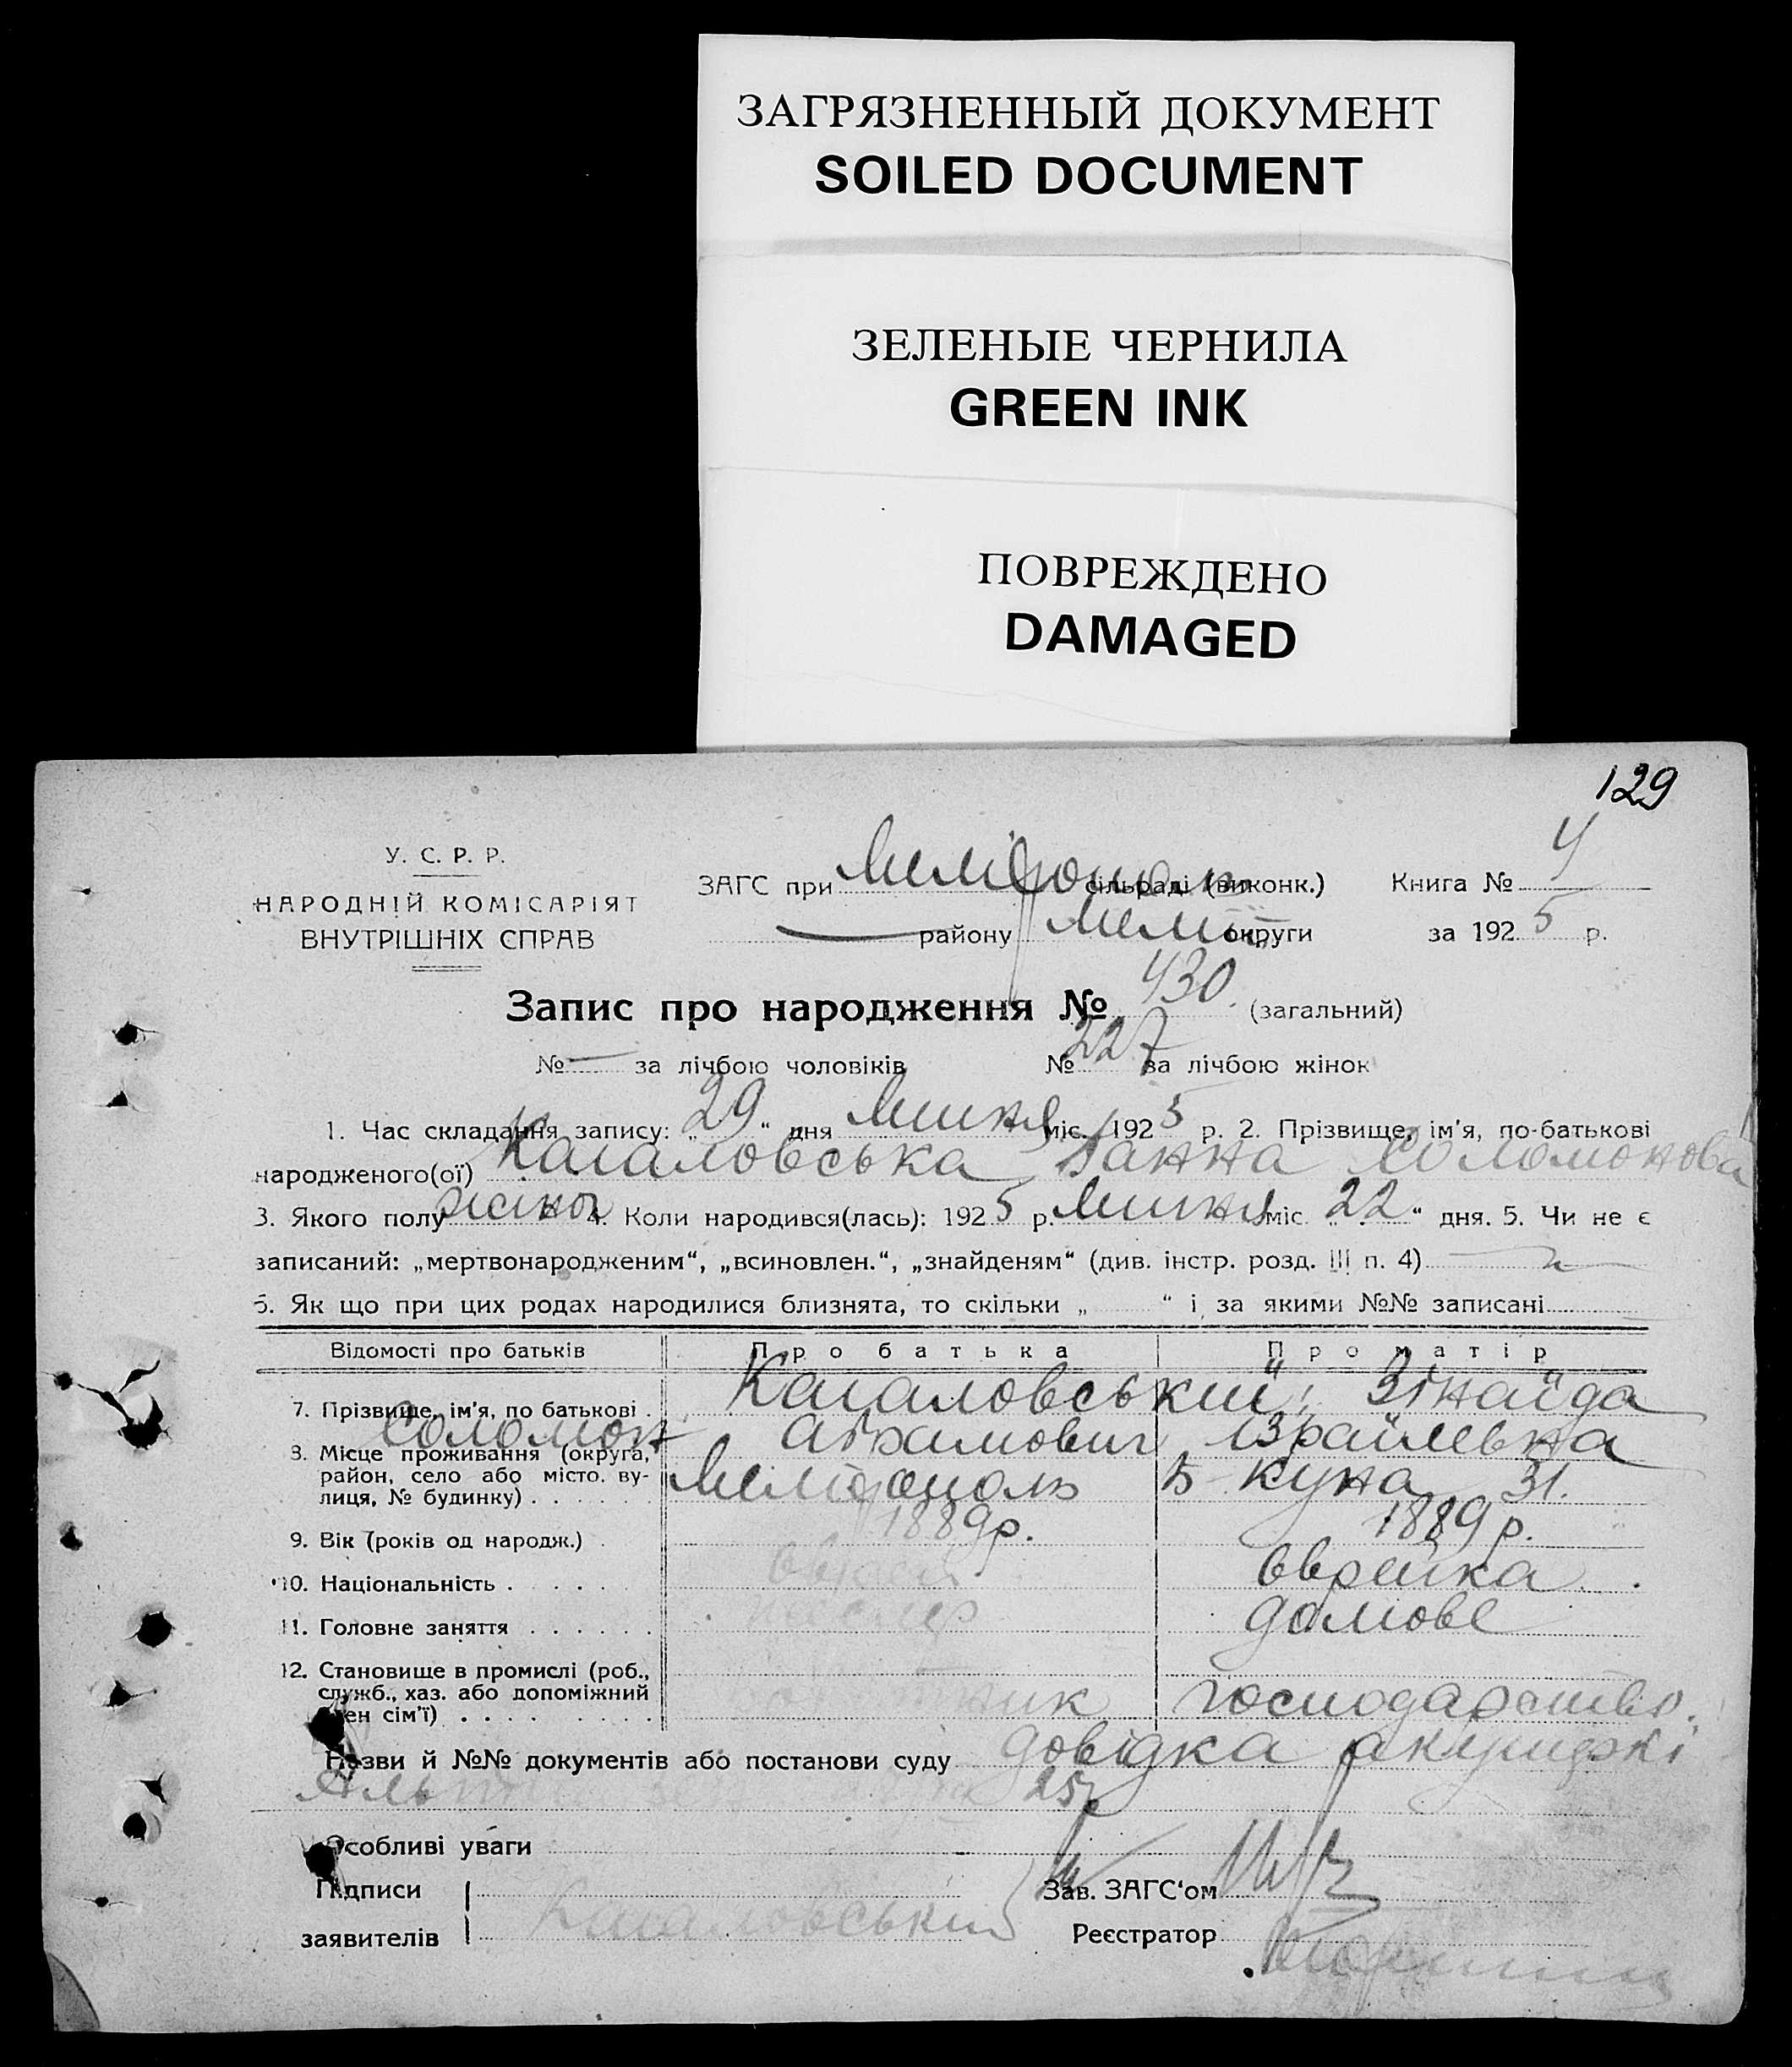 ЗАГРЯЗНЕННЫЙ ДОКУМЕНТ
SOILED DOCUMENT
ЗЕЛЕНЫЕ ЧЕРНИЛА
GREEN INK
ПОВРЕЖДЕНО
DAMAGED
129
У. С. Р. Р.
НАРОДНІЙ КОМІСАРІЯТ
ВНУТРІШНІХ СПРАВ
ЗАГС при Мелітополь сільраді (виконк.) Книга № 4
району Меліт. округи за 1925 р.
Запис про народження № 430. (загальний)
№ — за лічбою чоловіків № 227 за лічбою жінок
1. Час складання запису: „29“ дня Липня міс. 1925 р. 2. Прізвище, ім'я, по-батькові
народженого(ої) Кагаловська Ганна Соломонова
3. Якого полу жіноч 4. Коли народився(лась): 1925 р. Липня міс. „22“ дня. 5. Чи не є
записаний: „мертвонародженим“, „всиновлен.“, „знайденям“ (див. інстр. розд. III п. 4)
6. Як що при цих родах народилися близнята, то скільки „ “ і за якими №№ записані
Відомості про батьків Про батька Про матір
7. Прізвище, ім'я, по батькові . Кагаловський, Зінаїда
Соломон Абрамович Ізраїлевна
8. Місце проживання (округа, район, село або місто, вулиця, № будинку) . . . . . . Мелітополь Б-Куна 31.
9. Вік (років од народж.) . 1889 р. 1889 р.
10. Національність . . . . . еврей еврейка
11. Головне заняття . . . . . . домове
12. Становище в промислі (роб., служб., хаз. або допоміжний член сім'ї) . . . . господарство.
Назви й №№ документів або постанови суду довідка акушерки
25
Особливі уваги
Підписи
заявителів Кагаловський
Зав. ЗАГС'ом
Реєстратор